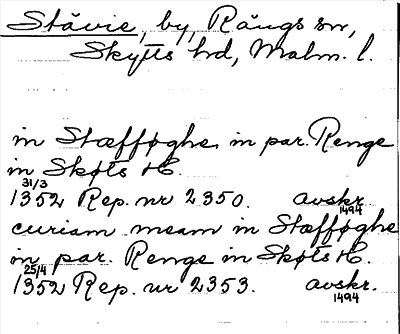 Stävie, by, Rängs sn,
Skytts hd, Malm. l.
in Stæfføghe in par. Renge
in Skøts H.
31/3
1352 Rep. nr 2350. avskr. 1494
curiam meam in Stæfføghe
in par. Renge in Skøts H.
25/4
1352 Rep. nr 2353. avskr. 1494